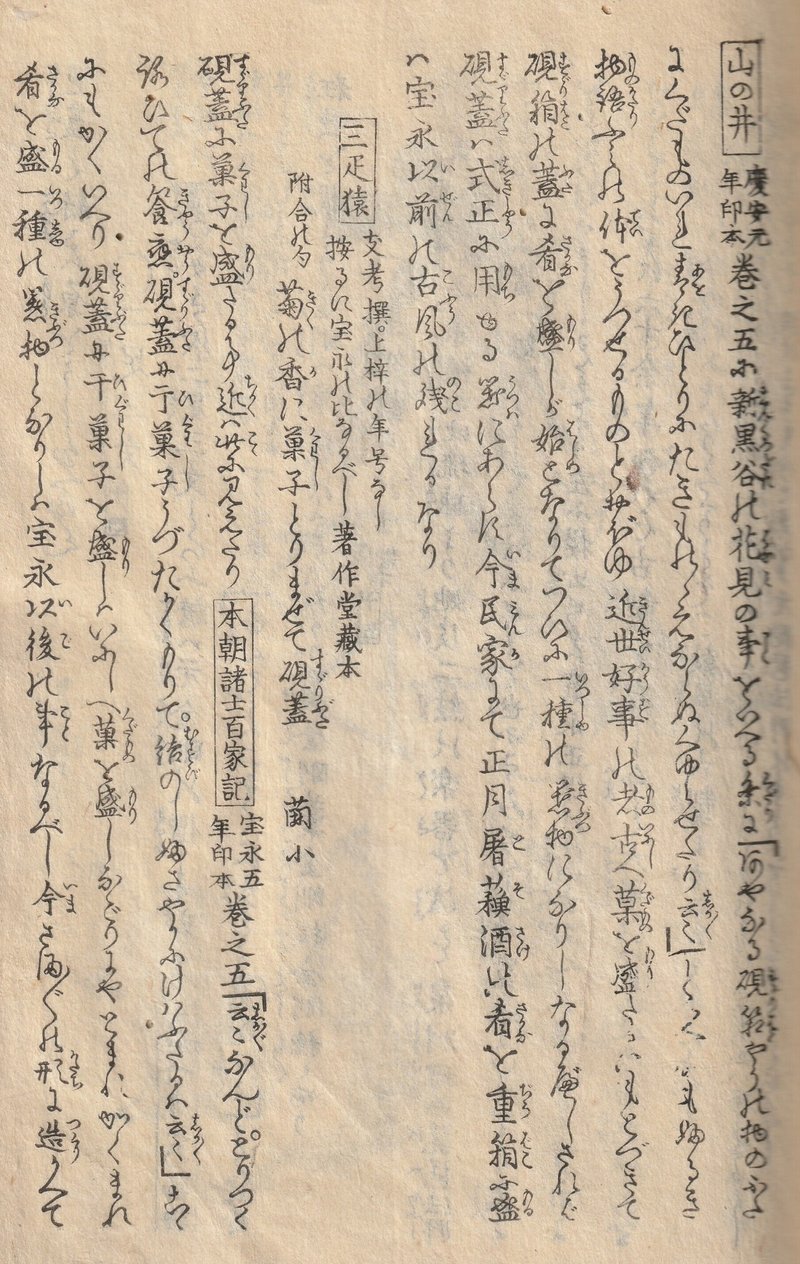 山の井 慶安元年印本 巻之五に新黒谷の花見の事をいへる条に「あやなる硯箱やうの物のふた
にくだものいれまほひとりにたきものくえならぬくゆらせたり云云」しかじかもふるき
物語ふみの体をうつせるものとおぼゆ近世好事の者古へ菓を盛たるにもとづきて
硯箱の蓋に肴を盛しが始となりてつひに一種の器物になりしなるべしされど
硯蓋は式正に用ゐる器にあらず今民家にて正月屠蘇酒の肴を重箱に盛
は宝永以前の古風の残れるなり
三疋猿 支考撰。上梓の年号なし按るに宝永の比なるべし 著作堂蔵本
附合の句 菊の香に菓子とりまぜて硯蓋 蘭小
硯蓋に菓子を盛たる事近くは此に見えたり 本朝諸士百家記 宝永五年印本 巻之五「云云なんど。とりつく
ろひての饗應。硯蓋に干菓子うづたかくもりて。結のしあざやかにけはふたるは云云」
にもかくいへり硯蓋に干菓子を盛しはいにしへ菓を盛しなごりにやともあれかくまれ
肴を盛一種の器物となりしは宝永以後の事なるべし今さまざまの形に造りて